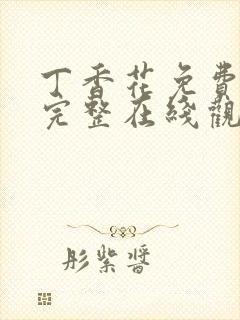 丁香花免费
完整在线觀
彤紫醬